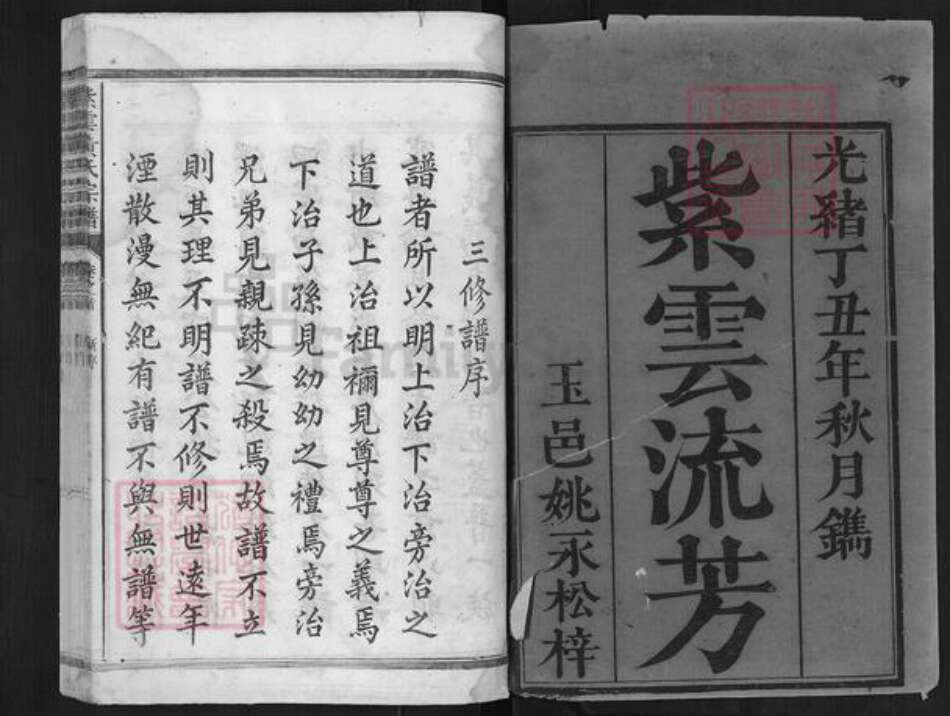 光緒丁丑年秋月鐫
紫雲流芳
玉邑姚永松梓
三修譜序
譜者所以明上治下治旁治之
道也上治祖禰見尊尊之義焉
下治子孫見幼幼之禮焉旁治
兄弟見親疎之殺焉故譜不立
則其理不明譜不修則世遠年
湮散漫無紀有譜不與無譜等